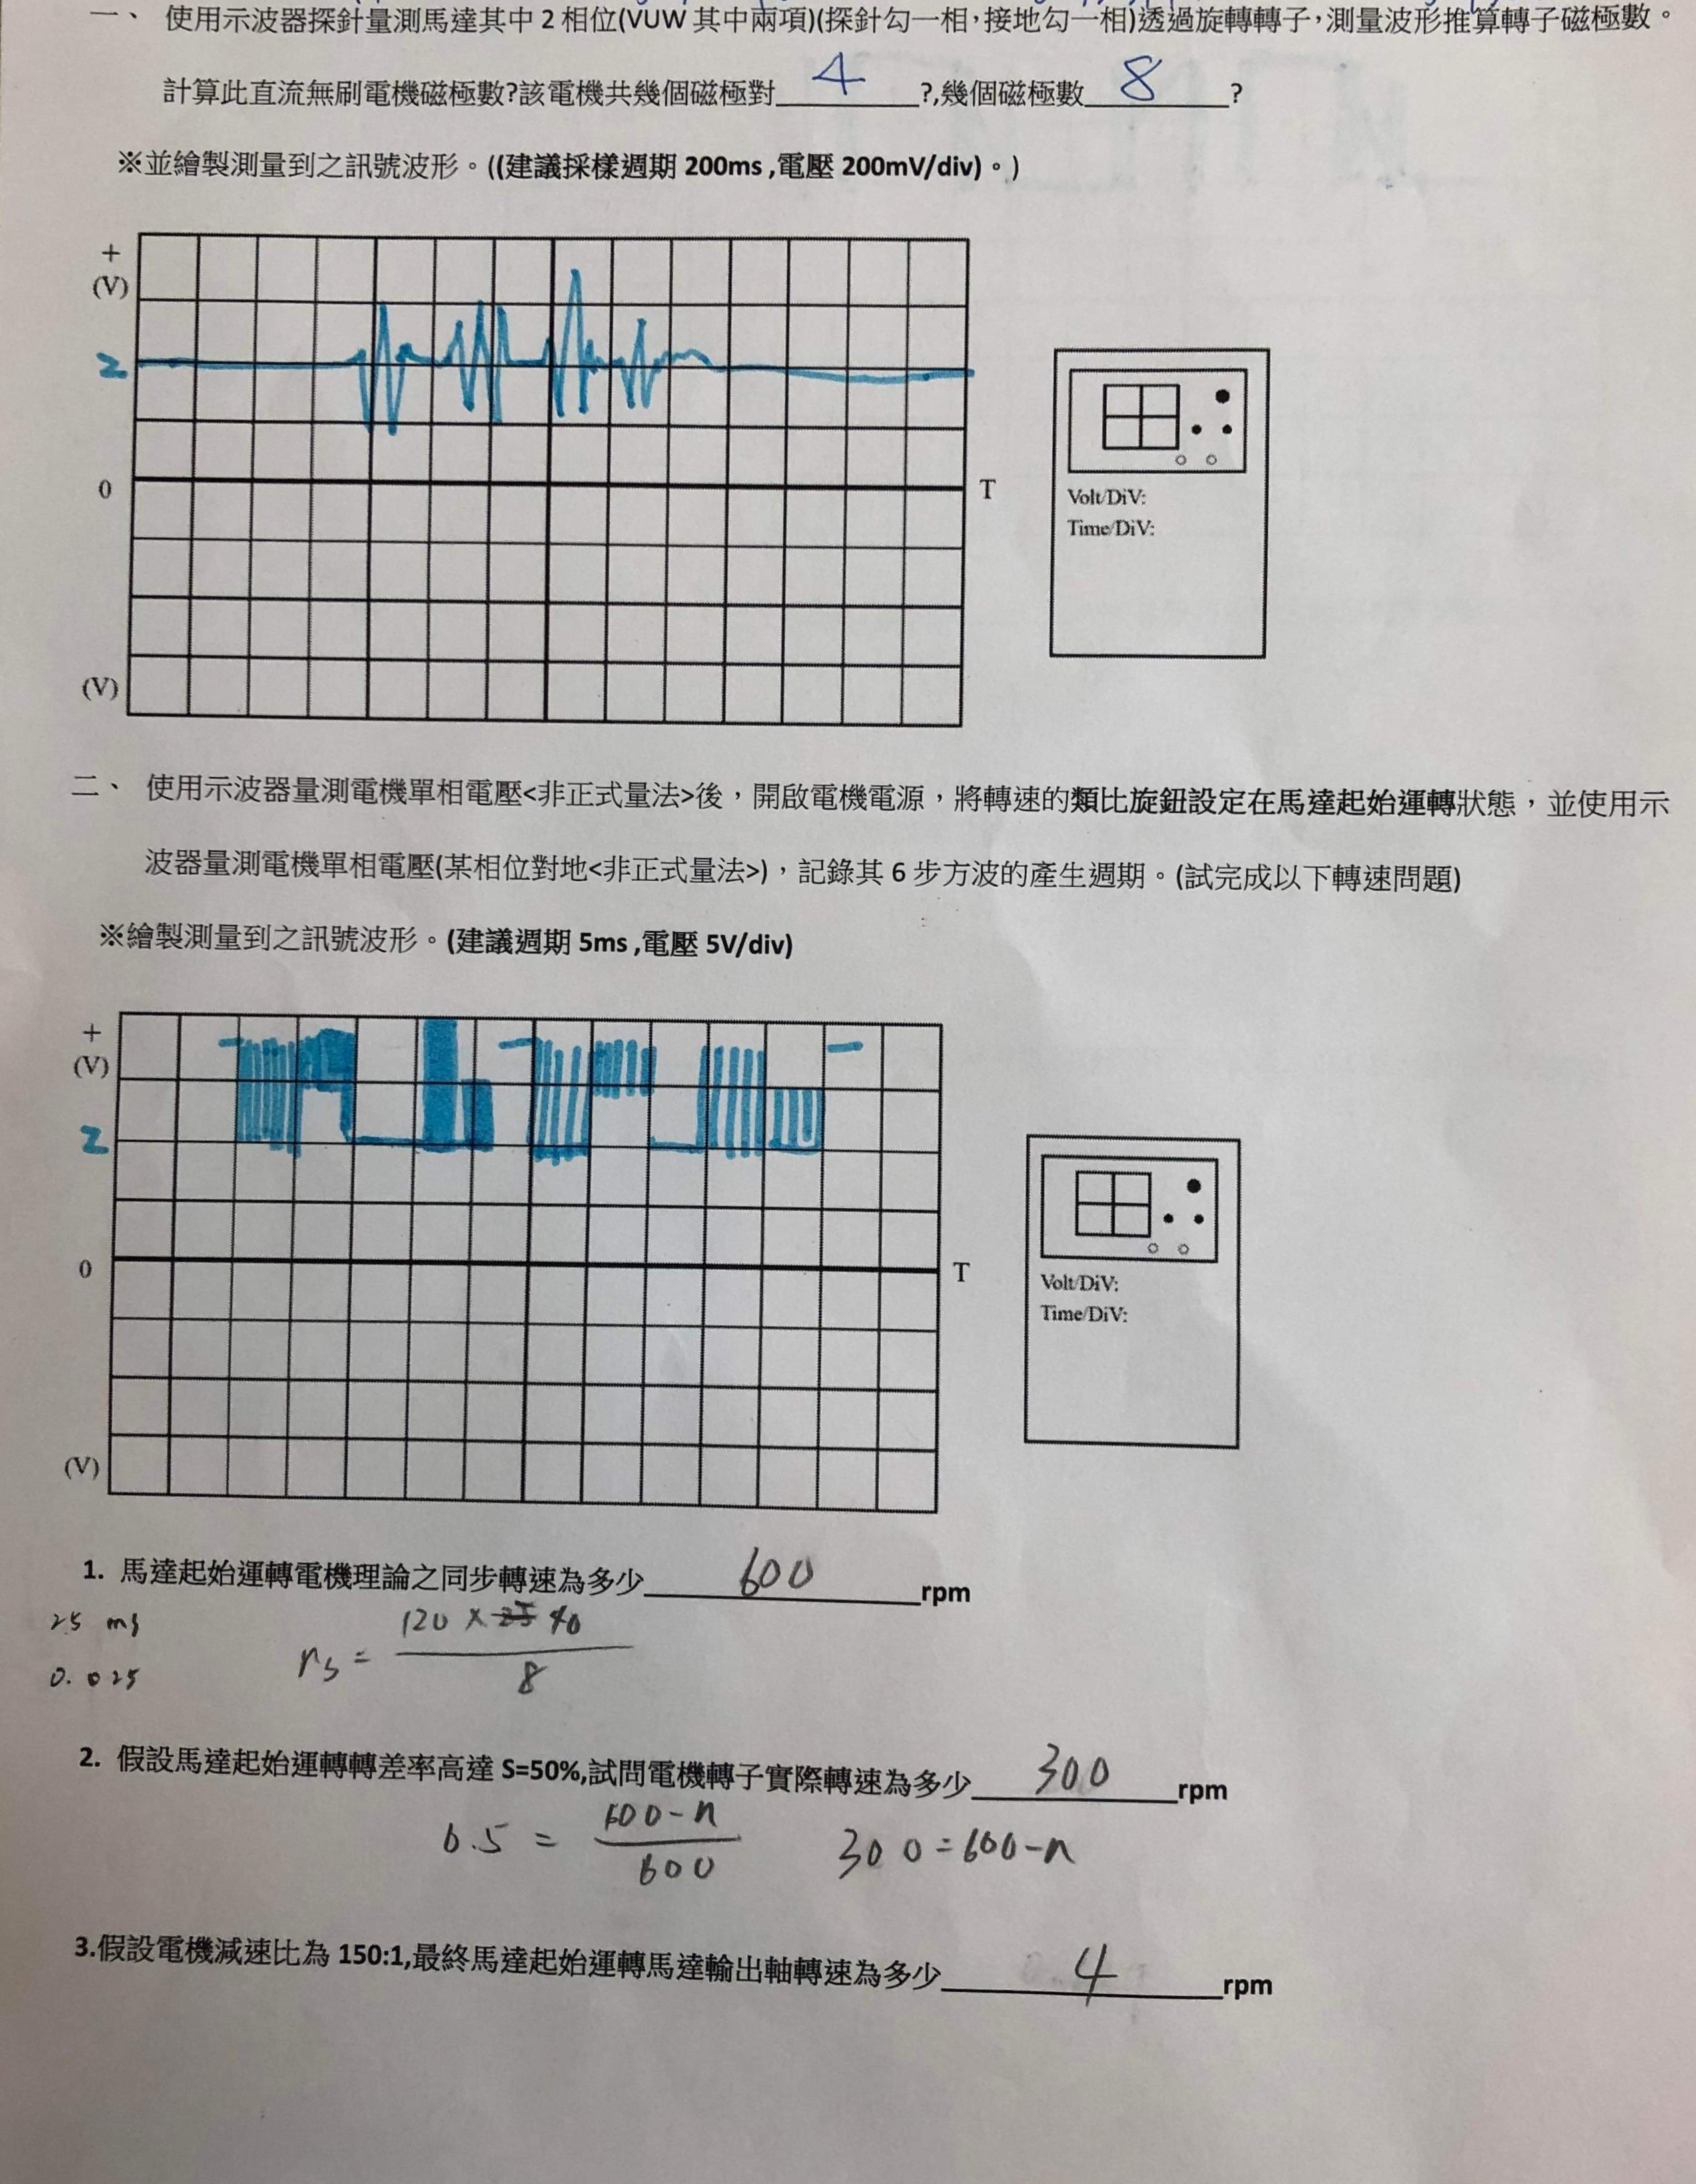 一、 使用示波器探針量測馬達其中 2 相位(VUW 其中兩項)(探針勾一相,接地勾一相)透過旋轉轉子,測量波形推算轉子磁極數。
計算此直流無刷電機磁極數?該電機共幾個磁極對 4 ?,幾個磁極數 8 ?
※並繪製測量到之訊號波形。((建議採樣週期 200ms ,電壓 200mV/div)。)
+
(V)
2
0
T
(V)
Volt/DiV:
Time/DiV:
二、 使用示波器量測電機單相電壓<非正式量法>後,開啟電機電源,將轉速的類比旋鈕設定在馬達起始運轉狀態,並使用示
波器量測電機單相電壓(某相位對地<非正式量法>),記錄其 6 步方波的產生週期。(試完成以下轉速問題)
※繪製測量到之訊號波形。(建議週期 5ms ,電壓 5V/div)
+
(V)
2
0
T
(V)
Volt/DiV:
Time/DiV:
1. 馬達起始運轉電機理論之同步轉速為多少 600 rpm
25 ms
0.025
ns = 120 × 40
8
2. 假設馬達起始運轉轉差率高達 S=50%,試問電機轉子實際轉速為多少 300 rpm
0.5 = 600-n
600
300=600-n
3.假設電機減速比為 150:1,最終馬達起始運轉馬達輸出軸轉速為多少 4 rpm